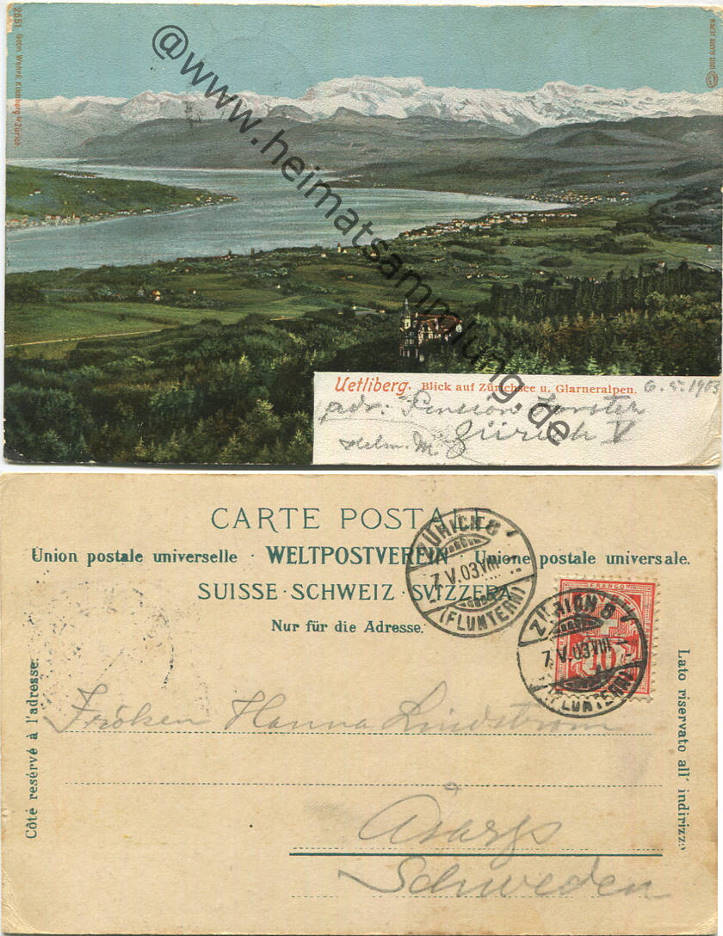 2551 Gebr. Wehrli, Kilchberg-Zürich
@www.heimatsammlung.de
Uetliberg. Blick auf Zürichsee u. Glarneralpen. 6.5.1903
adr. Pension Forster
Zürich V
Helm. M.
CARTE POSTALE
Union postale universelle · WELTPOSTVEREIN · Unione postale universale.
SUISSE · SCHWEIZ · SVIZZERA
Nur für die Adresse.
ZÜRICH 8
7.V.03.VIII
(FLUNTERN)
FRANCO
10
ZÜRICH 8
7.V.03.VIII
(FLUNTERN)
Côté resérvé à l'adresse.
Lato riservato all' indirizzo
Fröken Hanna Lindström
Schweden